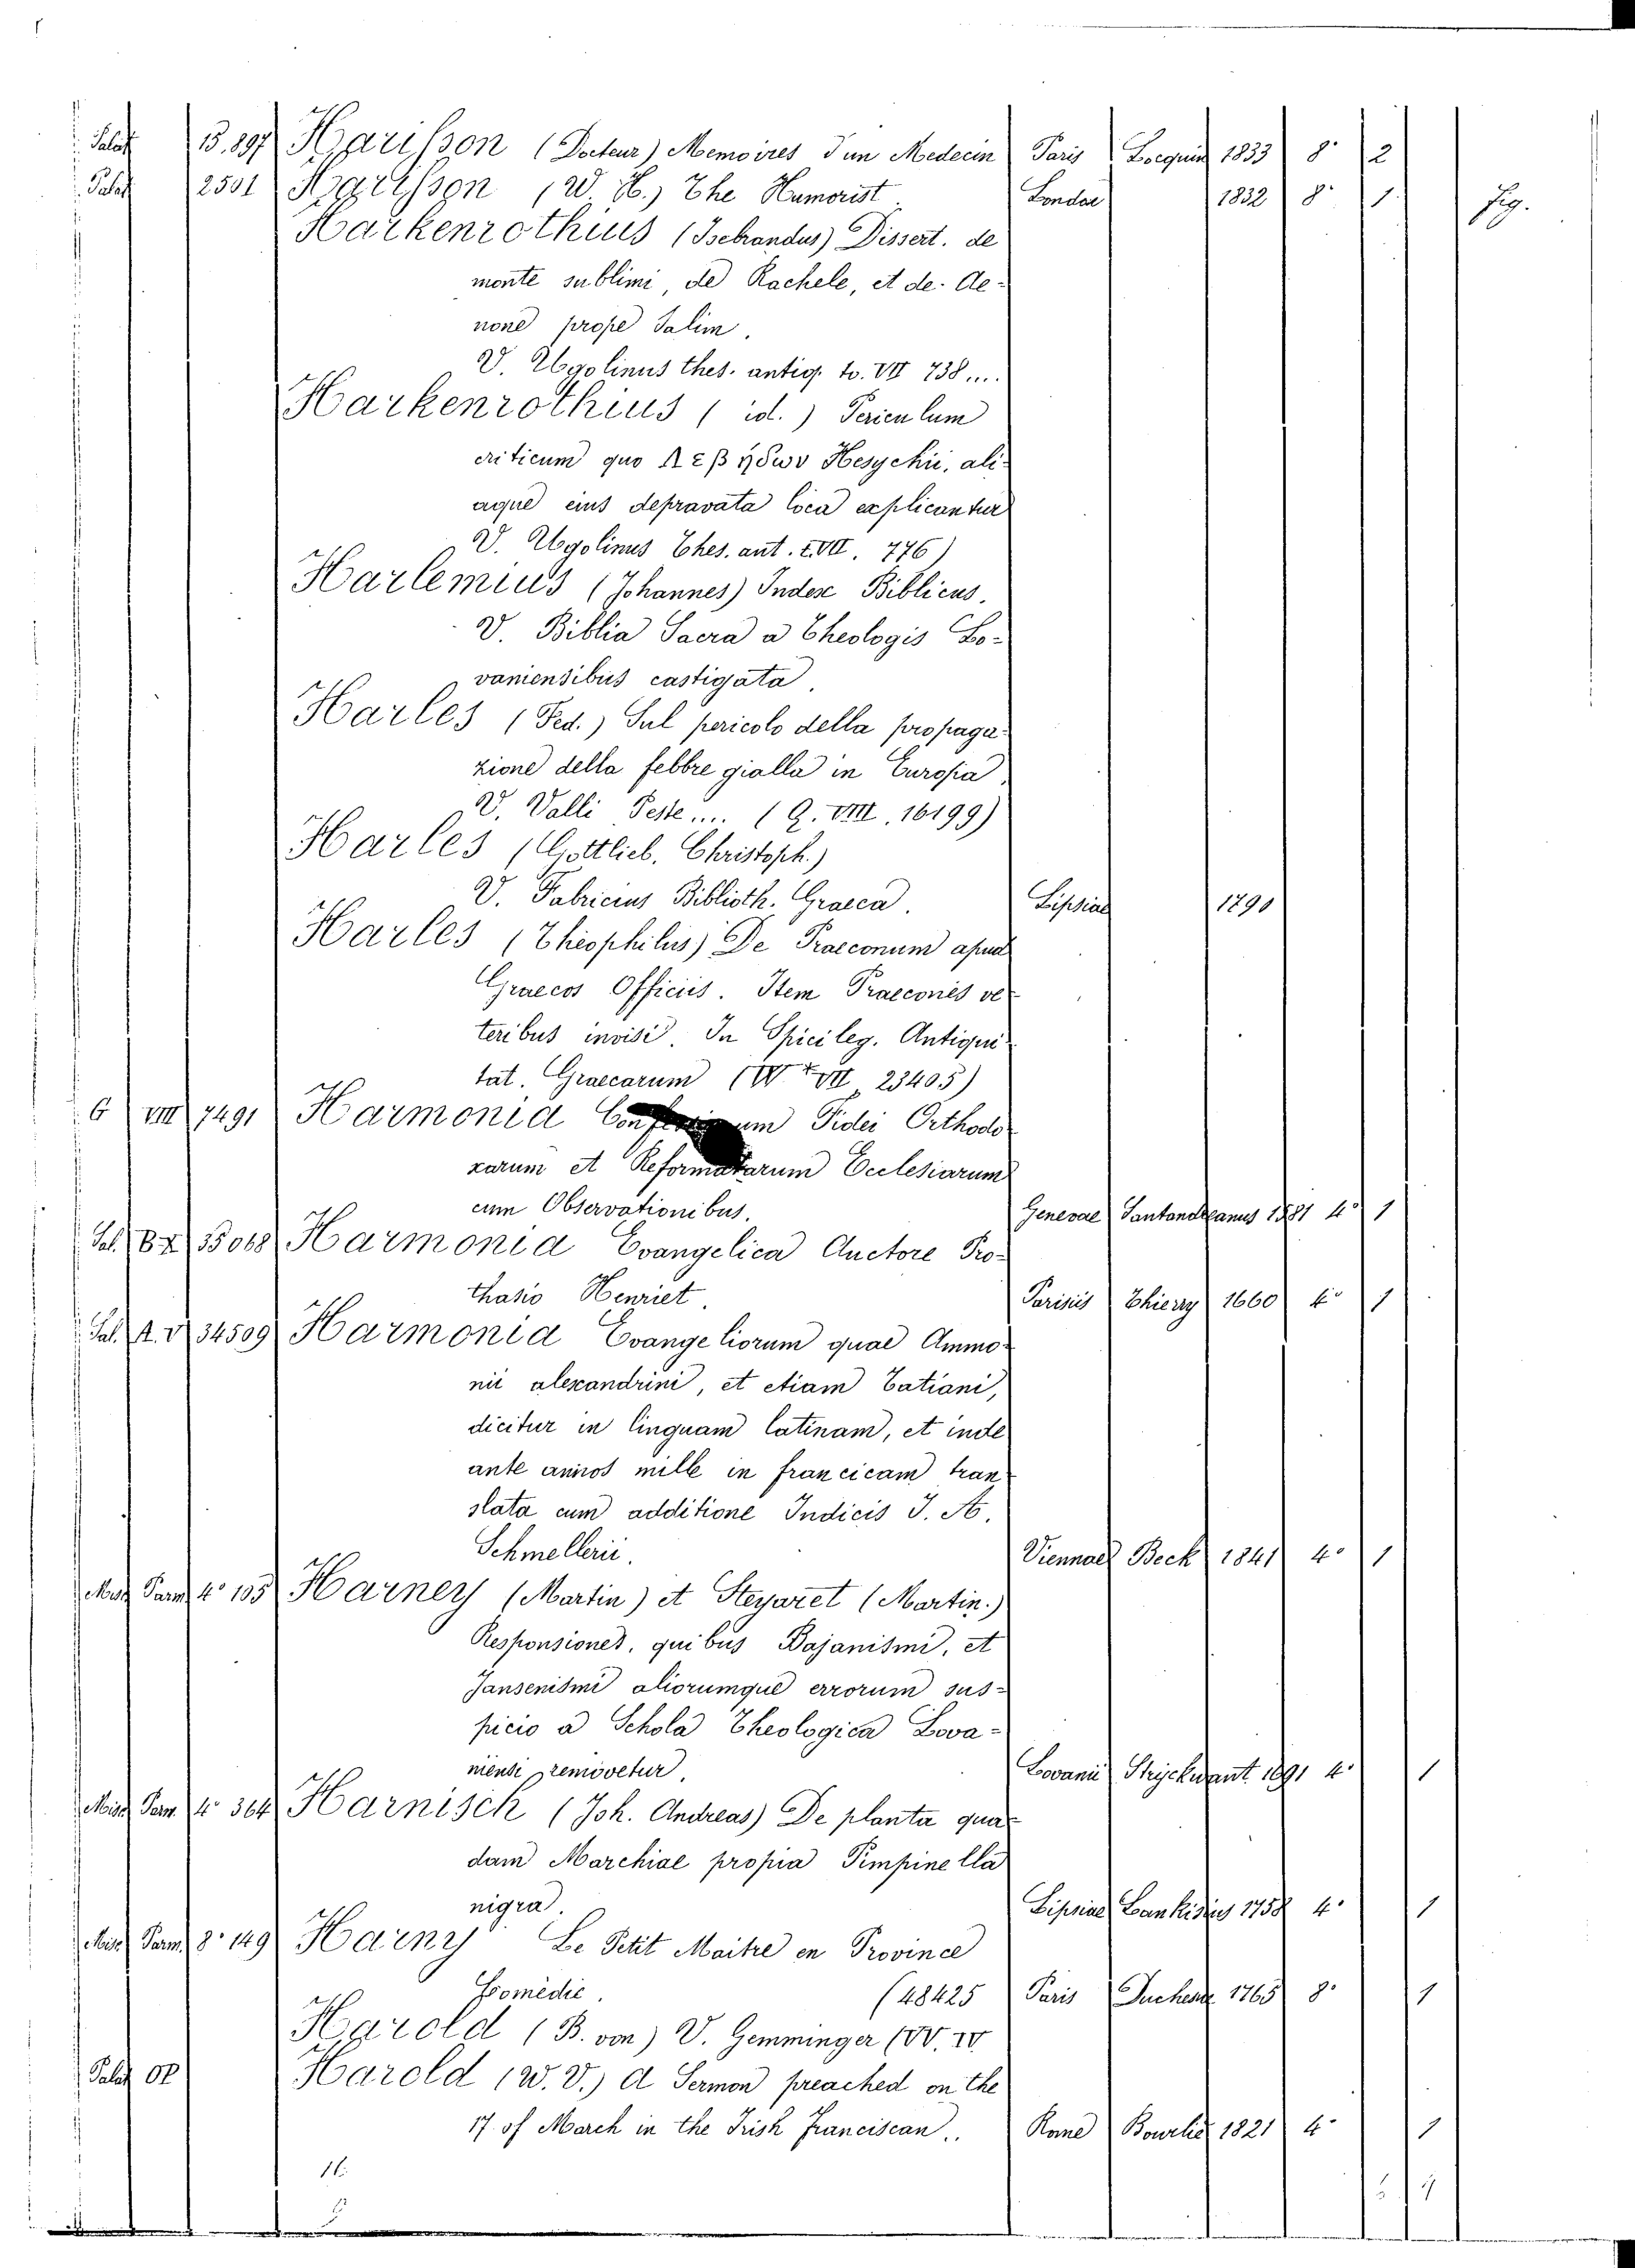 Palat 15.897 Harisson (Docteur) Memoires d'un Medecin Paris Locquin 1833 8° 2
Palat 2501 Harisson (W. H.) The Humorist. London 1832 8° 1 fig.
Harkenrothius (Isebrandus) Dissert. de
monte sublimi, de Rachele, et de Ae-
none prope Salim.
V. Ugolinus thes. antiq. to. VII 738....
Harkenrothius (id.) Periculum
criticum quo Λεβήδων Hesychii, ali-
aque eius depravata loca explicantur
V. Ugolinus Thes. ant. t. VII. 776)
Harlemius (Johannes) Index Biblicus.
V. Biblia Sacra a Theologis Lo-
vaniensibus castigata.
Harles (Fed.) Sul pericolo della propaga-
zione della febbre gialla in Europa.
V. Valli Peste.... (Q. VIII. 16199)
Harles (Gottlieb. Christoph.)
V. Fabricius Biblioth. Graeca. Lipsiae 1790
Harles (Theophilus) De Praeconum apud
Graecos Officiis. Item Praecones ve-
teribus invisi. In Spicileg. Antiqui-
tat. Graecarum (W + VII 23405)
G VIII 7491 Harmonia Confessionum Fidei Orthodo-
xarum et Reformatarum Ecclesiarum
cum Observationibus. Genevae Santandreanus 1581 4° 1
Sal. B X 35068 Harmonia Evangelica Auctore Pro-
thasio Henriet. Parisiis Thierry 1660 4° 1
Sal. A. V 34509 Harmonia Evangeliorum quae Ammo-
nii alexandrini, et etiam Tatiani,
dicitur in linguam latinam, et inde
ante annos mille in francicam tran-
slata cum additione Indicis J. A.
Schmellerii. Viennae Beck 1841 4° 1
Misc. Parm. 4° 195 Harney (Martin) et Steyaret (Martin.)
Responsiones, quibus Bajanismi, et
Jansenismi aliorumque errorum sus-
picio a Schola Theologica Lova-
niensi removetur. Lovanii Stryckwant 1691 4° 1
Misc. Parm. 4° 364 Harnisch (Joh. Andreas) De planta qua-
dam Marchiae propia Pimpinella
nigra. Lipsiae Lankisius 1758 4° 1
Misc. Parm. 8° 149 Harny Le Petit Maitre en Province
Comèdie. (48425 Paris Duchesne 1765 8° 1
Harold (B. von) V. Gemminger (VV. IV
Palat OP Harold (W. V.) A Sermon preached on the
17 of March in the Irish Franciscan.. Rome Bourlié 1821 4° 1
16.